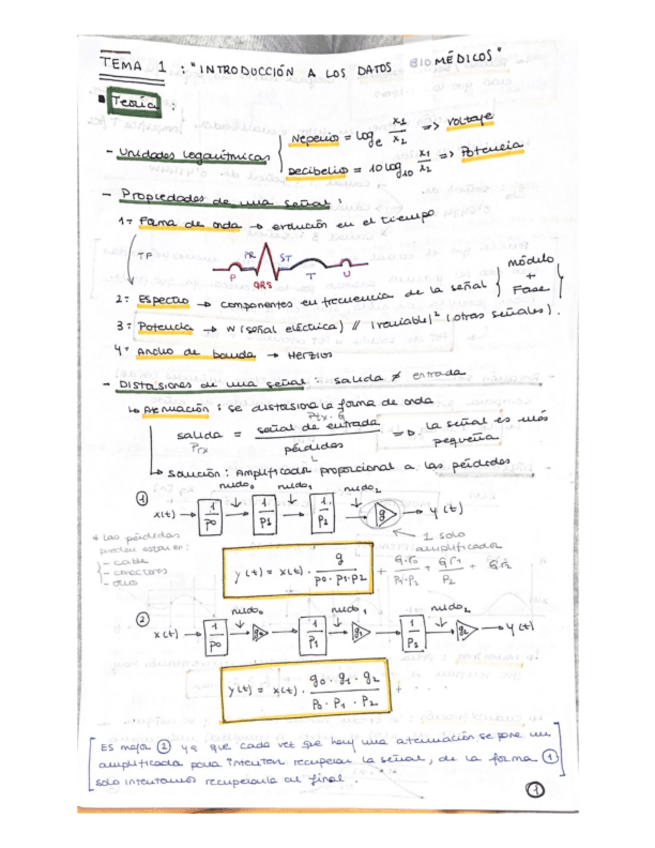 TEMA 1 : "INTRODUCCIÓN A LOS DATOS BIOMÉDICOS"
Teoría :
- Unidades logarítmicas { Neperio = log e x1/x2 => Voltaje
Decibelio = 10 log10 x1/x2 => Potencia
- Propiedades de una señal :
1= Forma de onda → evolución en el tiempo
TF
P PR QRS ST T U
2= Espectro → componentes en frecuencia de la señal { módulo + Fase }
3= Potencia → W (señal eléctrica) // |variable|² (otras señales).
4= Ancho de banda → Herzios
- Distorsiones de una señal : salida ≠ entrada
↳ Atenuación : se distorsiona la forma de onda
Ptx · G
salida = señal de entrada / pérdidas => la señal es más pequeña
Prx
L
↳ Solución : Amplificador proporcional a las pérdidas
① ruido0 ruido1 ruido2
x(t) → 1/p0 → 1/p1 → 1/p2 → g → y(t)
* Las pérdidas pueden estar en :
- cable
- conectores
- otro
1 solo amplificador
y(t) = x(t) · g / p0 · p1 · p2
② ruido0 ruido1 ruido2
x(t) → 1/p0 → g0 → 1/p1 → g1 → 1/p2 → g2 → y(t)
y(t) = x(t) · g0 · g1 · g2 / p0 · p1 · p2 + ...
[ES mejor ② ya que cada vez que hay una atenuación se pone un
amplificador para intentar recuperar la señal, de la forma ①
solo intentamos recuperarla al final.]
①